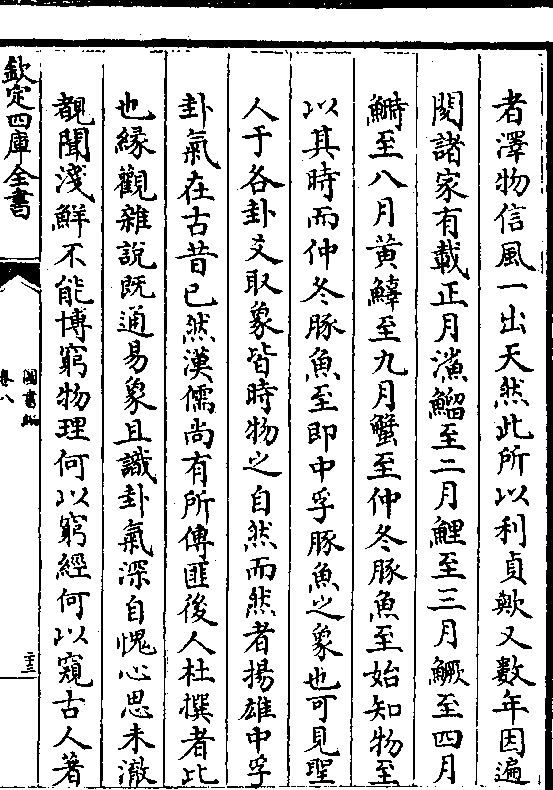 者澤物信風一出天然此所以利貞歟又數年因遍
閱諸家有載正月鯊鰡至二月鯉至三月鱖至四月
鰣至八月黃鱘至九月蟹至仲冬豚魚至始知物至
以其時而仲冬豚魚至即中孚豚魚之象也可見聖
人于各卦爻取象皆時物之自然而然者揚雄中孚
卦氣在古昔已然漢儒尚有所傳匪後人杜撰者比
也緣觀雜說既通易象且識卦氣深自愧心思未澈
覩聞淺鮮不能博窮物理何以窮經何以窺古人著
欽定四庫全書
圖書編
卷八
二十三